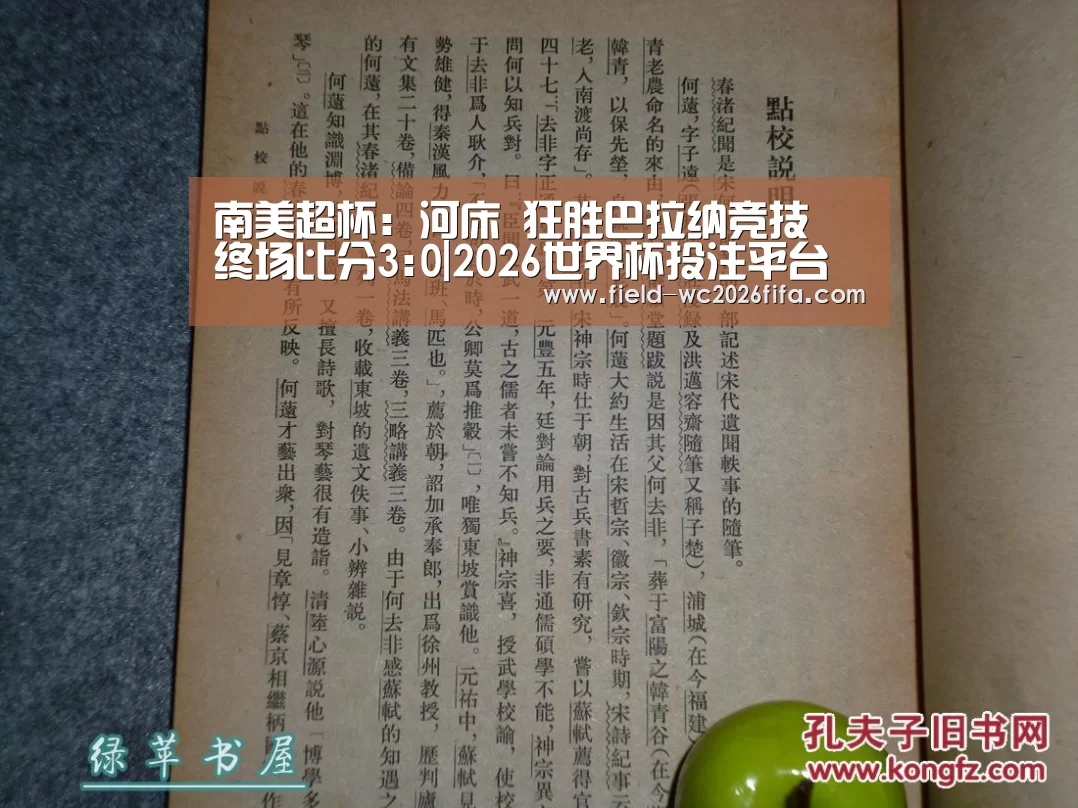 點校説明
春渚紀聞是宋何
部記述宋代遺聞軼事的隨筆。
何薳，字子遠
録及洪邁容齋隨筆又稱子楚），浦城（在今福建
青老農命名的來由
堂題跋説是因其父何去非，「葬于富陽之韓青谷（在今
韓青，以保先塋，自
。何薳大約生活在宋哲宗、徽宗、欽宗時期，宋詩紀事云
老，人南渡尚存」。
宋神宗時仕于朝，對古兵書素有研究，嘗以蘇軾薦得官
四十七：「去非字正通
元豐五年，廷對論用兵之要，非通儒碩學不能，神宗異
問何以知兵對。曰：『臣聞
武一道，古之儒者未嘗不知兵。』神宗喜，授武學校諭，使校
于去非爲人耿介，「
於時，公卿莫爲推轂」〔一〕，唯獨東坡賞識他。元祐中，蘇軾見
勢雄健，得秦漢風力
班、馬匹也。」，薦於朝，詔加承奉郎，出爲徐州教授，歷判廬
有文集二十卷，備論四卷，司馬法講義三卷，三略講義三卷。由于何去非感蘇軾的知遇之
的何薳，在其春渚紀
列一卷，收載東坡的遺文佚事、小辨雜説。
何薳知識淵博，
又擅長詩歌，對琴藝很有造詣。清陸心源説他「博學多
琴」〔二〕。這在他的春
有所反映。何薳才藝出衆，因「見章惇、蔡京相繼柄
作
點校説
南美超杯：河床 狂胜巴拉纳竞技
终场比分3:0|2026世界杯投注平台
www.field-wc2026fifa.com
绿苹书屋
孔夫子旧书网
www.kongfz.com